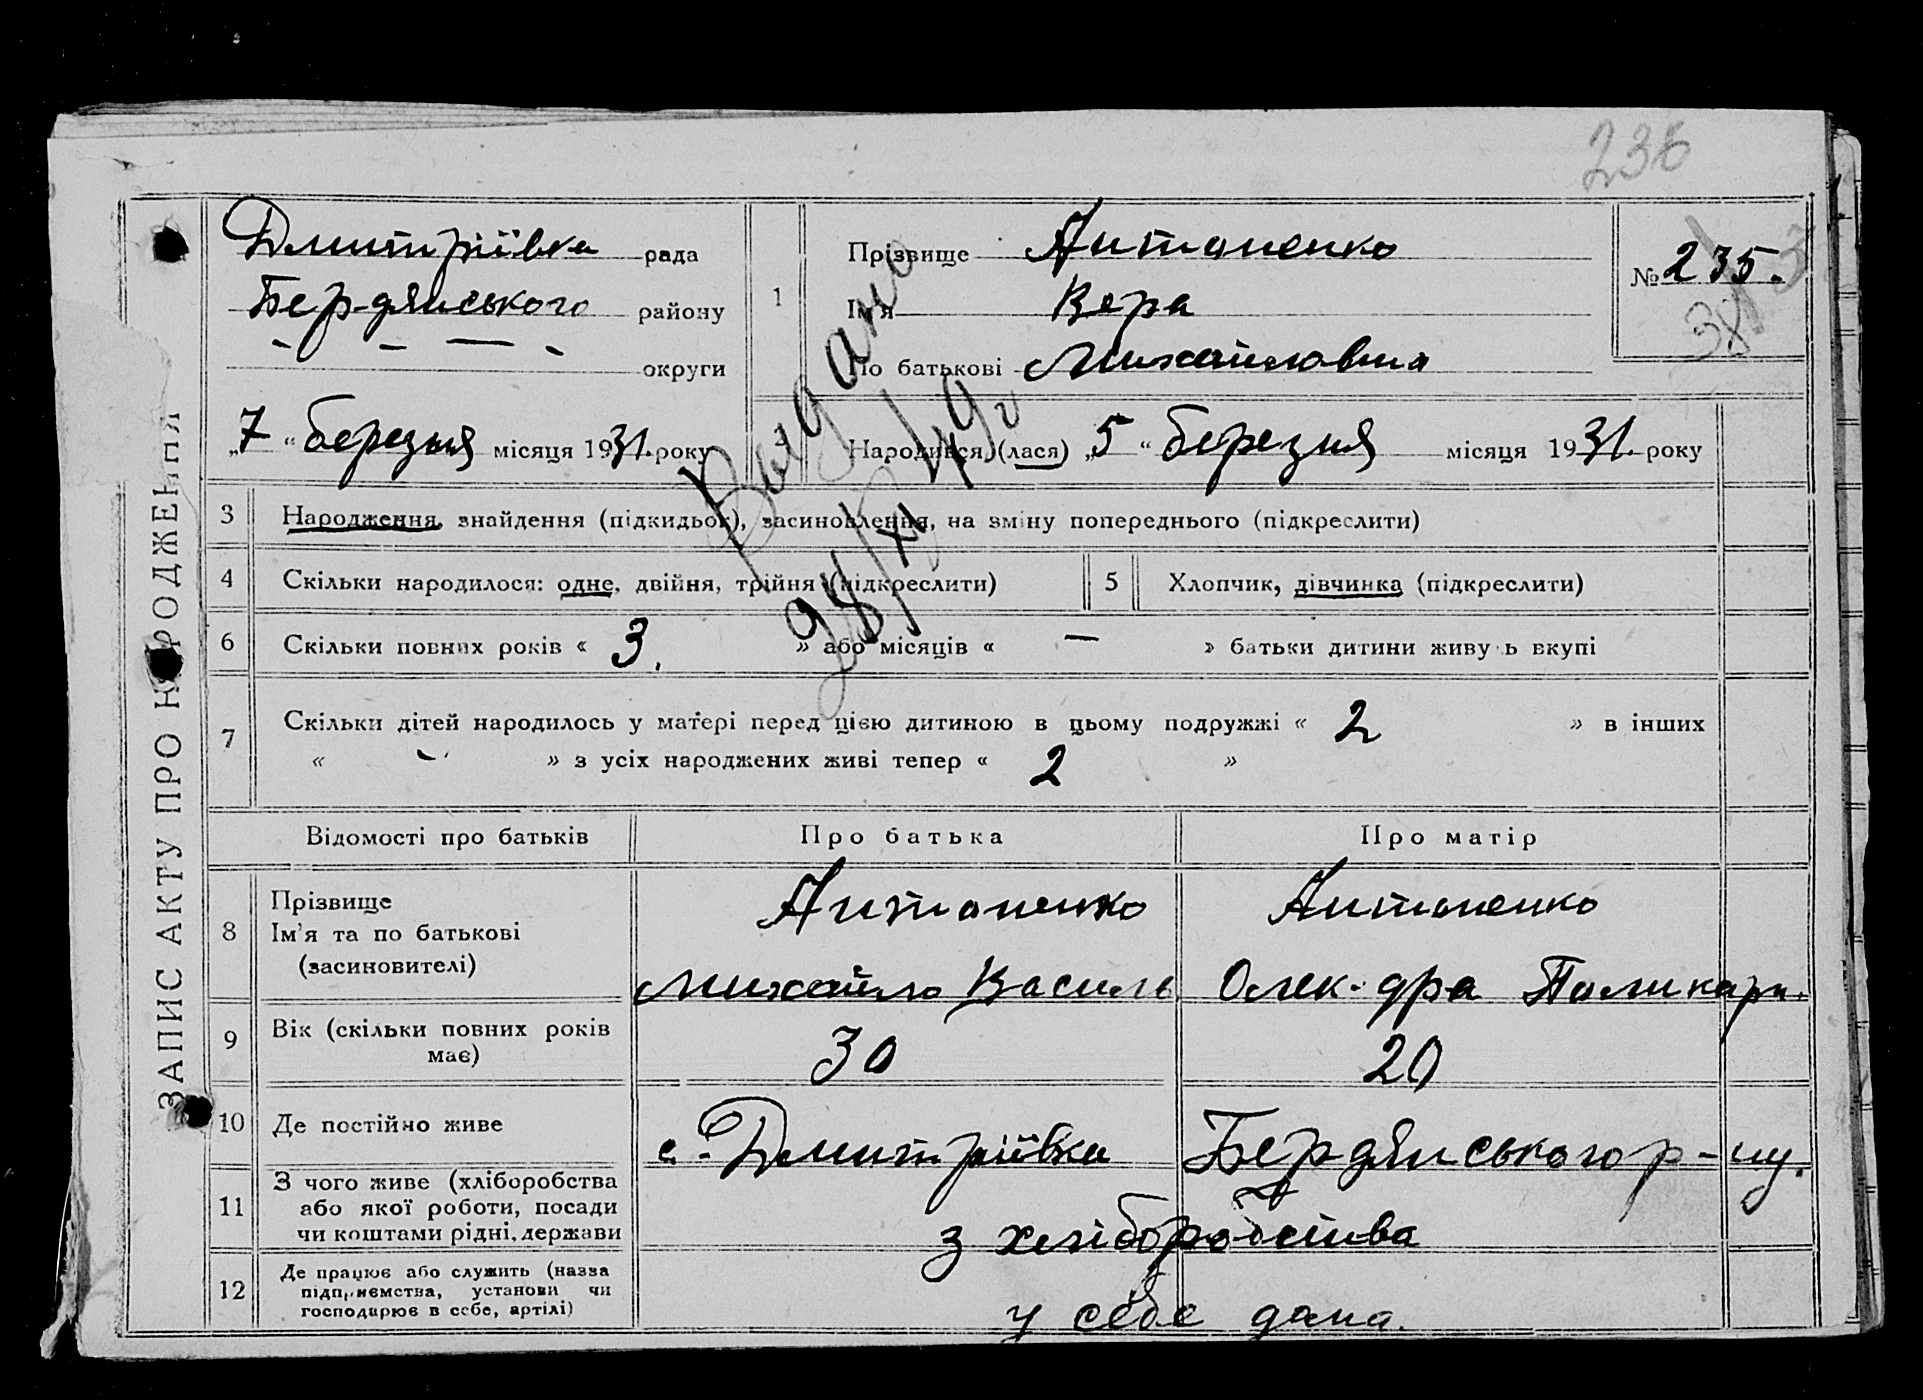 236
ЗАПИС АКТУ ПРО НАРОДЖЕННЯ
Дмитріївка рада
Бердянського району
— — — — округи
„7“ березня місяця 1931. року
1
Прізвище Антоненко
Ім'я Вера
По батькові Михайловна
№ 235.
Народився (лася) „5“ березня місяця 1931. року
Выдано
28/XI 49 г
3 Народження, знайдення (підкидьок), засиновлення, на зміну попереднього (підкреслити)
4 Скільки народилося: одне, двійня, трійня (підкреслити)
5 Хлопчик, дівчинка (підкреслити)
6 Скільки повних років « 3. » або місяців « — » батьки дитини живуть вкупі
7 Скільки дітей народилось у матері перед цією дитиною в цьому подружжі « 2 » в інших
« - » з усіх народжених живі тепер « 2 »
Відомості про батьків Про батька Про матір
8 Прізвище
Ім'я та по батькові
(засиновителі)
Антоненко
Михайло Василь
Антоненко
Олек-дра Поликарп.
9 Вік (скільки повних років
має)
30
20
10 Де постійно живе
с. Дмитріївка Бердянського р-ну.
11 З чого живе (хліборобства
або якої роботи, посади
чи коштами рідні, держави
з хліборобства
12 Де працює або служить (назва
підприємства, установи чи
господарює в себе, артілі)
у себе дома.